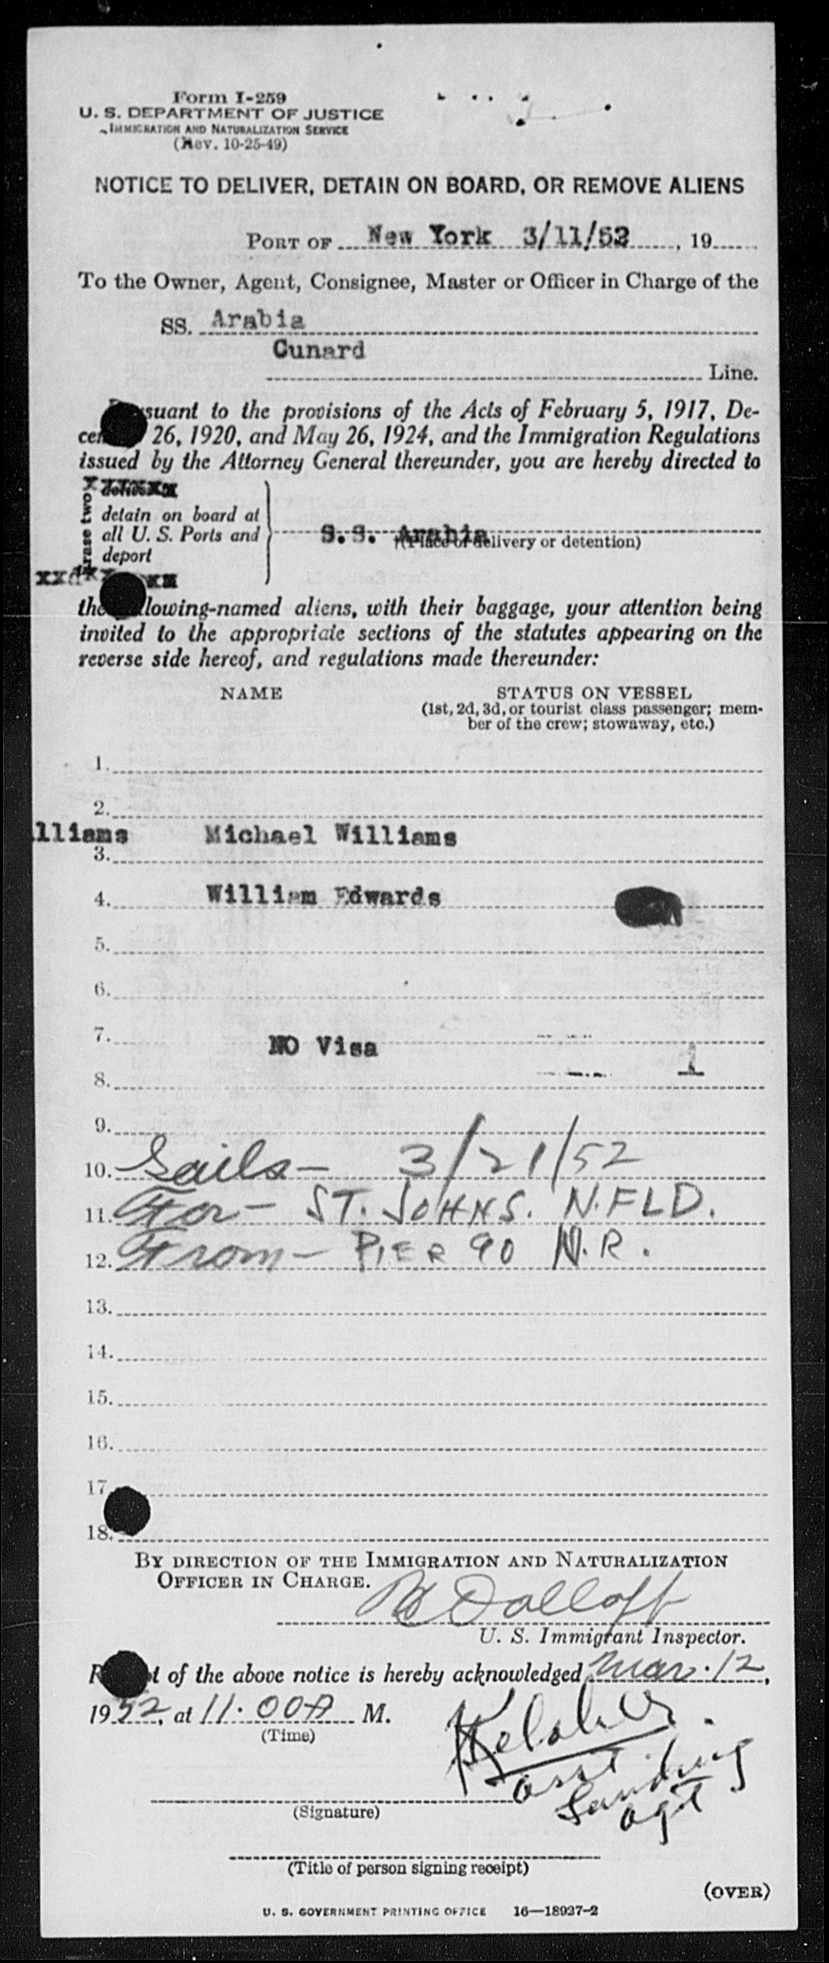 Form I-259
U. S. DEPARTMENT OF JUSTICE
IMMIGRATION AND NATURALIZATION SERVICE
(Rev. 10-25-49)
NOTICE TO DELIVER, DETAIN ON BOARD, OR REMOVE ALIENS
PORT OF New York 3/11/52, 19
To the Owner, Agent, Consignee, Master or Officer in Charge of the
SS. Arabia
Cunard
Line.
suant to the provisions of the Acts of February 5, 1917, De-
cem 26, 1920, and May 26, 1924, and the Immigration Regulations
issued by the Attorney General thereunder, you are hereby directed to
detain on board at
all U. S. Ports and
deport
S.S. Arabia
(Place of delivery or detention)
the lowing-named aliens, with their baggage, your attention being
invited to the appropriate sections of the statutes appearing on the
reverse side hereof, and regulations made thereunder:
NAME STATUS ON VESSEL
(1st, 2d, 3d, or tourist class passenger; mem-
ber of the crew; stowaway, etc.)
1.
2.
lliams Michael Williams
3.
4. William Edwards
5.
6.
7.
NO Visa
8.
9.
10. Sails - 3/21/52
11. For - ST. JOHNS. N.FLD.
12. From - PIER 90 N.R.
13.
14.
15.
16.
17
18.
BY DIRECTION OF THE IMMIGRATION AND NATURALIZATION
OFFICER IN CHARGE.
U. S. Immigrant Inspector.
R t of the above notice is hereby acknowledged Mar. 12,
1952, at 11:00 A M.
(Time)
asst. Landing
agt
(Signature)
(Title of person signing receipt)
(OVER)
U. S. GOVERNMENT PRINTING OFFICE 16—18927-2